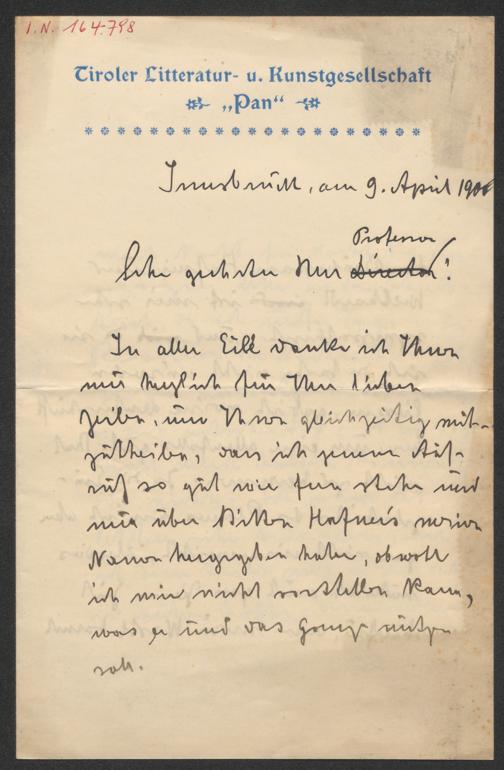 I.N. 164.798
Tiroler Litteratur- u. Kunstgesellschaft
„Pan“
Innsbruck, am 9. April 1906
Professor
Sehr geehrter Herr Director!
In aller Eile danke ich Ihnen
nur herzlich für Ihre lieben
Zeilen, um Ihnen gleichzeitig mit-
zutheilen, dass ich jenem Auf-
ruf so gut wie fern stehe und
nur über Bitten Hafner's meinen
Namen hergegeben habe, obwohl
ich mir nicht vorstellen kann,
was er und das Ganze nützen
soll.